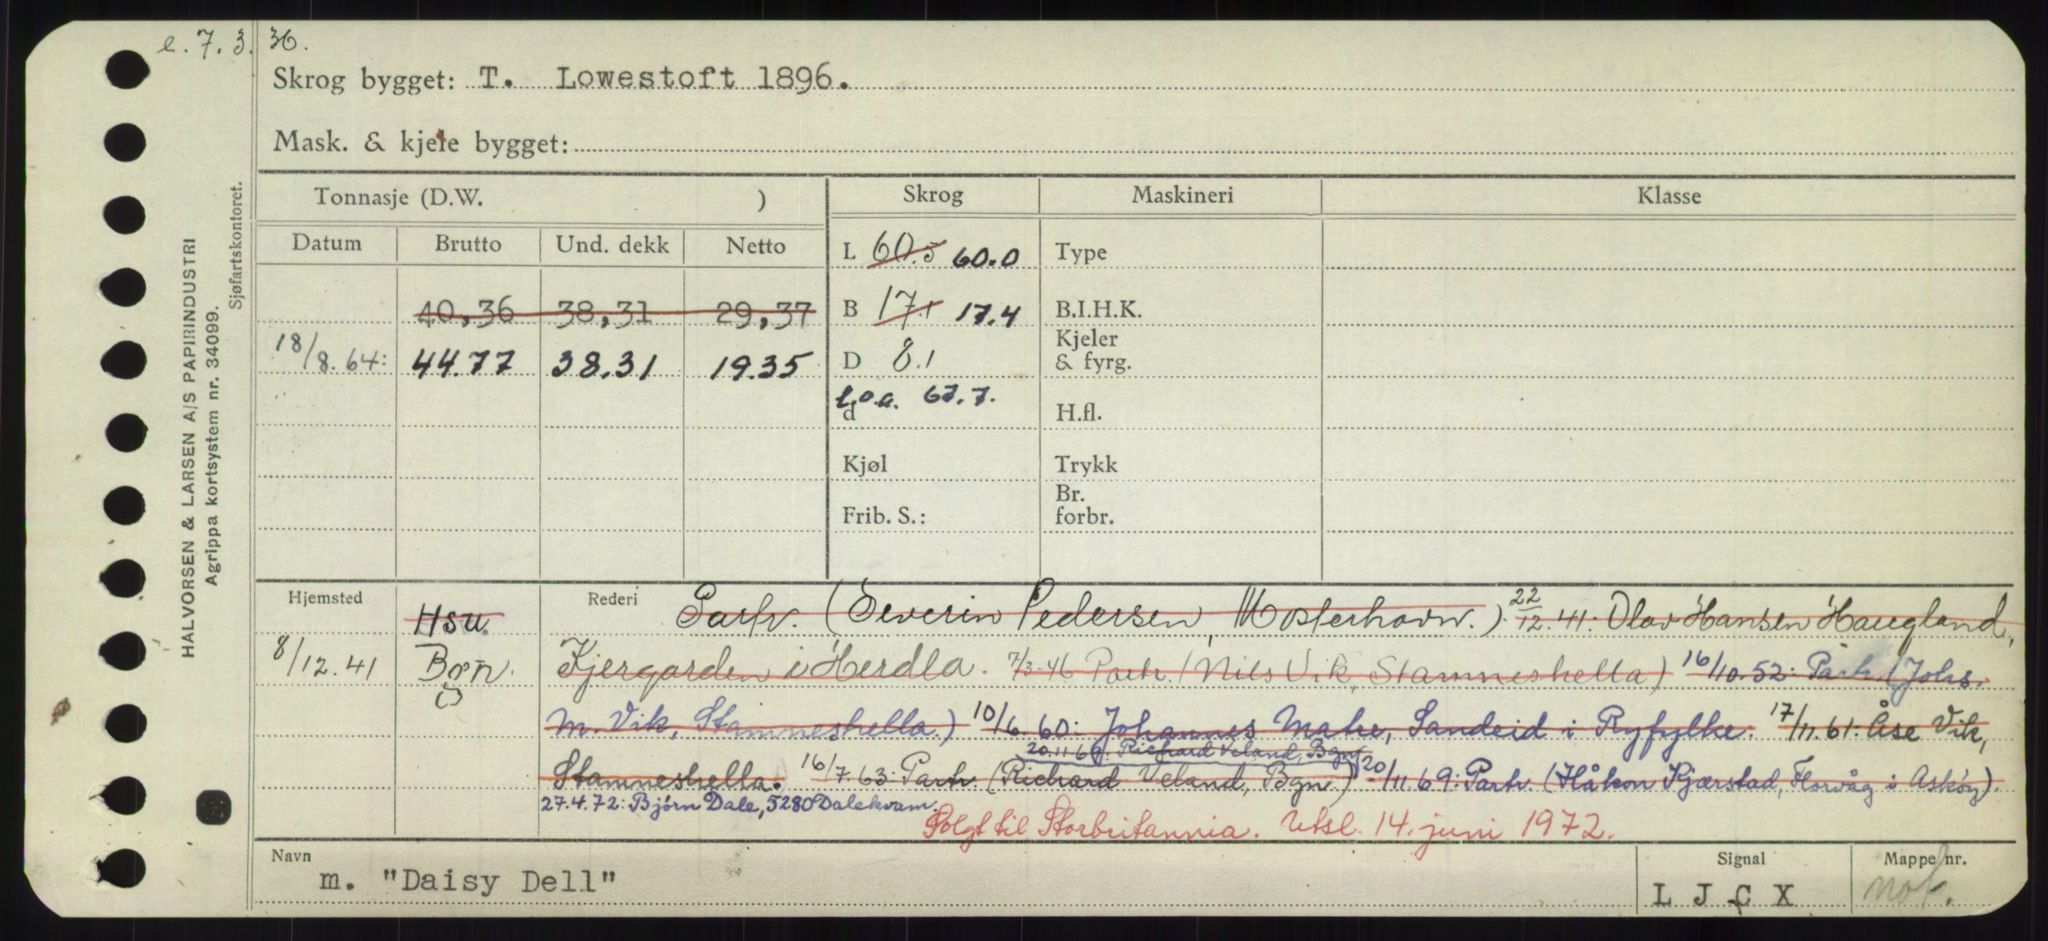 e. 7. 3. 36.
Skrog bygget: T. Lowestoft 1896.
Mask. & kjele bygget:
Tonnasje (D.W. )
Skrog
Maskineri
Klasse
Datum
Brutto
Und. dekk
Netto
L 60.5 60.0
Type
40,36 38,31 29,37
B 17.1 17.4
B.I.H.K.
18/8.64: 44.77 38.31 19.35
D 8.1
Kjeler
& fyrg.
l.o.a. 67.7.
d
H.fl.
Kjøl
Trykk
Frib. S.:
Br.
forbr.
Hjemsted
Hsu.
Rederi
Partr. (Severin Pedersen, Mosterhavn.) 22/12.41: Olav Hansen Haugland,
8/12.41 Bgn.
Kjergarden i Herdla. 7/3-46 Partr. (Nils Vik, Stamneshella) 16/10.52: Partr. (Johs.
M. Vik, Stamneshella.) 10/6.60: Johannes Mahe, Sandeid i Ryfylke. 17/11.61: Åse Vik,
20.11.69: Richard Veland, Bgn.
Stamneshella. 16/7.63: Partr. (Richard Veland, Bgn.) 20/11.69: Partr. (Håkon Kjærstad, Florvåg i Askøy).
27.4.72: Bjørn Dale, 5280 Dalekvam.
Solgt til Storbritannia. Utsl. 14. juni 1972.
Navn
m. "Daisy Dell"
Signal
L J C X
Mappe nr.
not.
HALVORSEN & LARSEN A/S PAPIRINDUSTRI
Agrippa kortsystem nr. 34099.
Sjøfartskontoret.